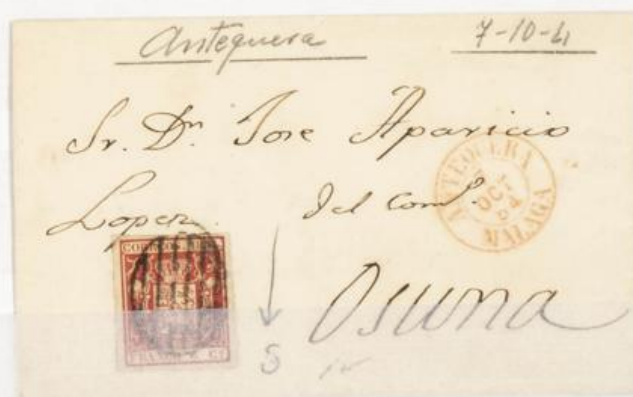 Antequera 7-10-
Sr. Dn. Jose Aparicio
Lopez. del Como.
ANTEQUERA
OCT
54
MALAGA
CORREOS
Osuna
S